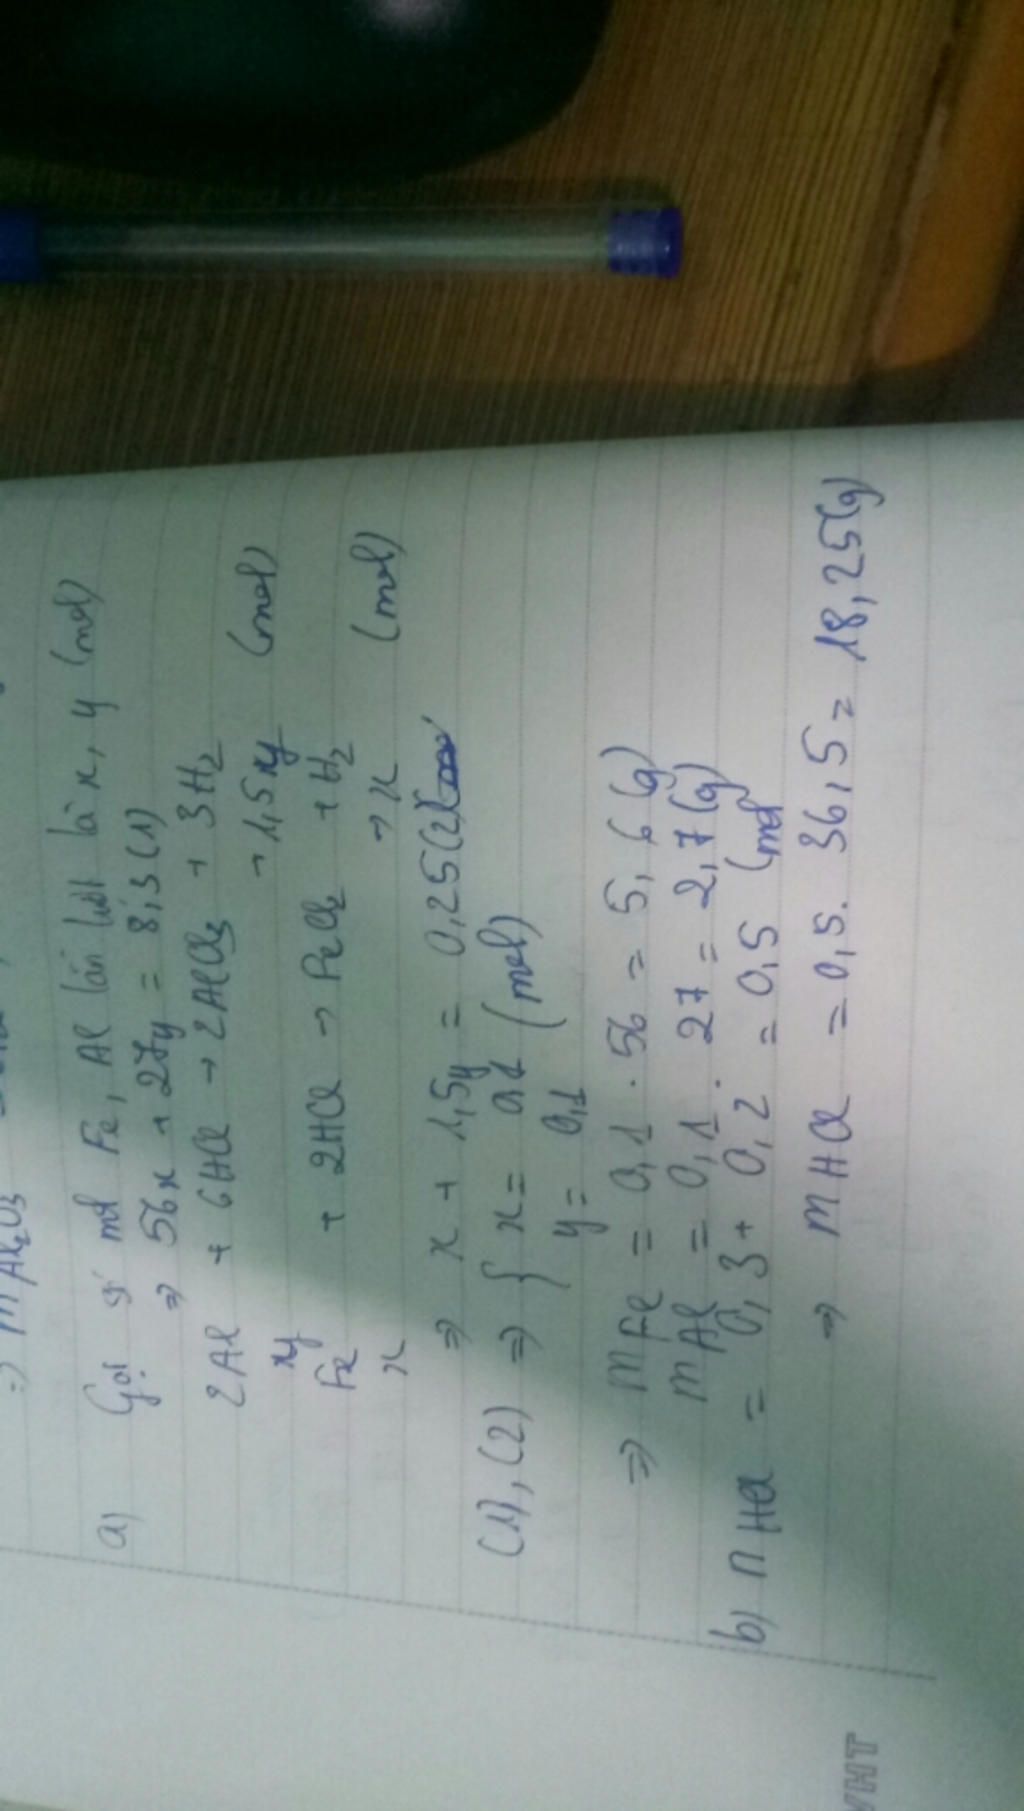 => mAl2O3
a) Gọi số mol Fe, Al lần lượt là x, y (mol)
=> 56x + 27y = 8,3 (1)
2Al + 6HCl → 2AlCl3 + 3H2
y → 1,5y (mol)
Fe + 2HCl → FeCl2 + H2
x → x (mol)
=> x + 1,5y = 0,25 (2)
(1), (2) => { x = 0,1 (mol)
y = 0,1
=> mFe = 0,1 . 56 = 5,6 (g)
mAl = 0,1 . 27 = 2,7 (g)
b) nHCl = 0,3 + 0,2 = 0,5 (mol
=> mHCl = 0,5 . 36,5 = 18,25 (g)